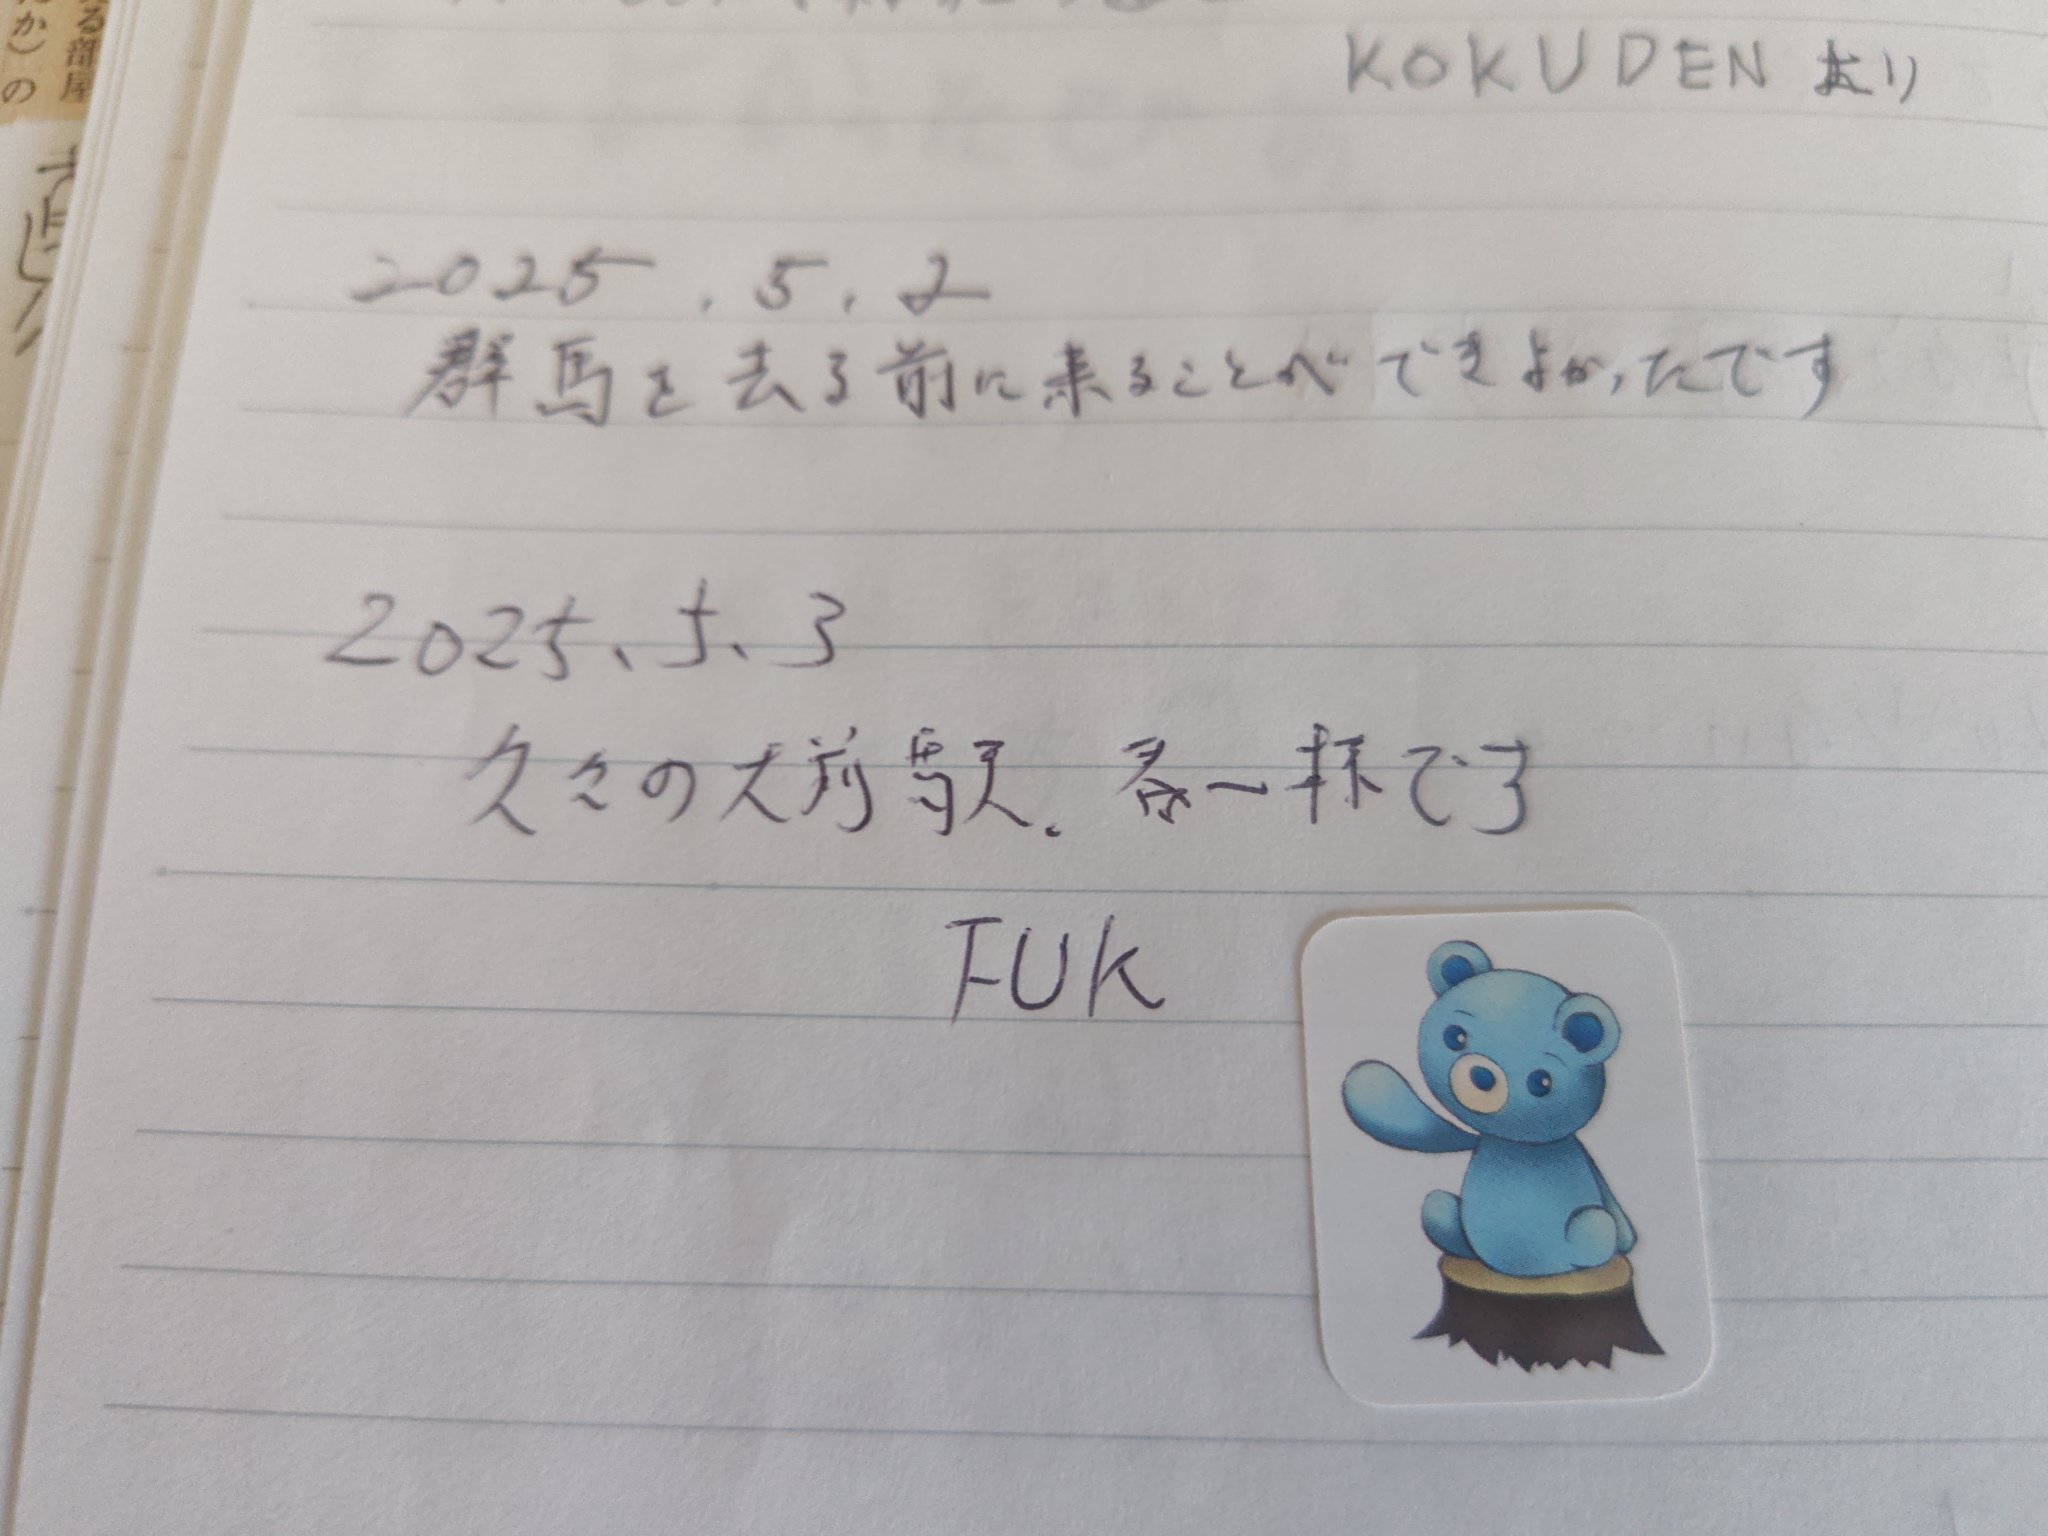 KOKUDEN より
2025.5.2
群馬を去る前に来ることができよかったです
2025、5、3
久々の大前駅.春一杯です
FUK
る部屋
か）の